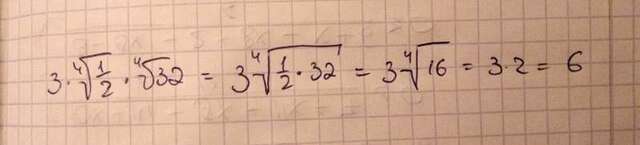 3 · ⁴√(1/2) · ⁴√32 = 3 ⁴√(1/2 · 32) = 3 ⁴√16 = 3 · 2 = 6